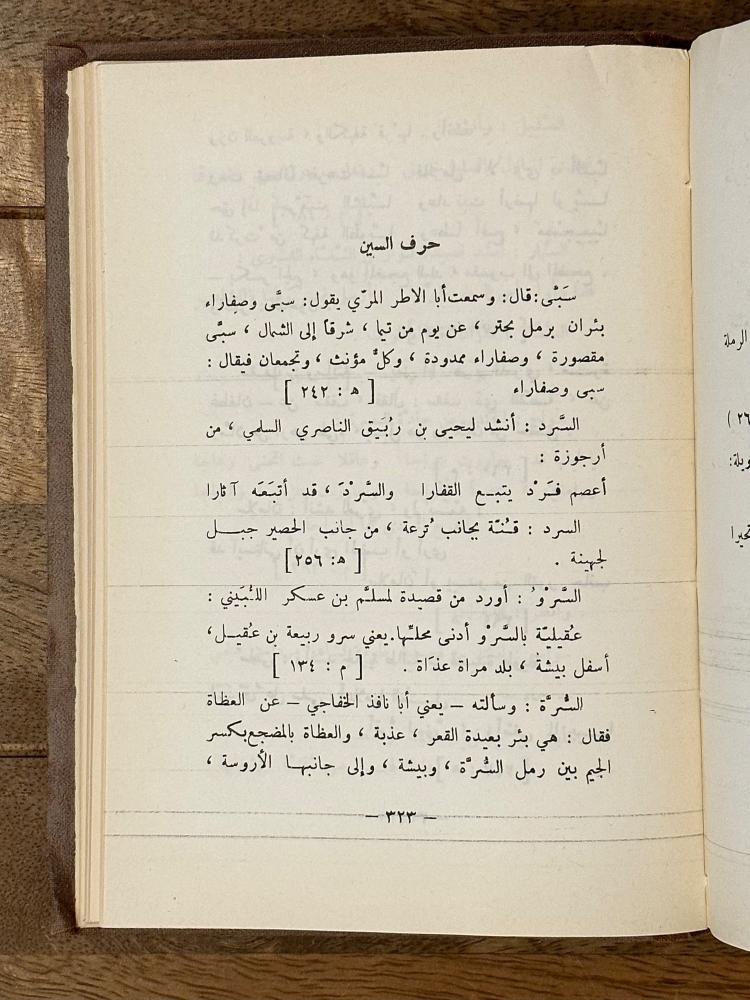 حرف السين
سَبَّى: قال: وسمعت أبا الاطر المرّي يقول: سبَّى وصفاراء
بئران برمل بحتر ، عن يوم من تيما ، شرقاً إلى الشمال ، سبَّى
مقصورة ، وصفاراء ممدودة ، وكلٌّ مؤنث ، وتجمعان فيقال :
سبى وصفاراء [ ه : ٢٤٢ ]
السَّرد : أنشد ليحيى بن رُبَيق الناصري السلمي ، من
أرجوزة :
أعصم فَرْد يتبع القفارا والسَّردَ ، قد أتبَعَه آثارا
السرد : قُنّة بجانب تُرعة ، من جانب الحصير جبل
لجهينة . [ ه: ٢٥٦ ]
السَّرْوُ : أورد من قصيدة لمسلَّم بن عسكر اللبَيني :
عُقيليّة بالسَّرْو أدنى محلّها. يعني سرو ربيعة بن عُقيل،
أسفل بيشة ، بلد مراة عذَاة . [ م : ١٣٤ ]
السُّرَّة : وسألته — يعني أبا نافذ الخفاجي — عن العظاة
فقال : هي بئر بعيدة القعر ، عذبة ، والعظاة بالمضجع بكسر
الجيم بين رمل السُّرَّة ، وبيشة ، وإلى جانبها الأروسة ،
— ٣٢٣ —
الرملة
٢٦ )
ويلة:
تحيرا